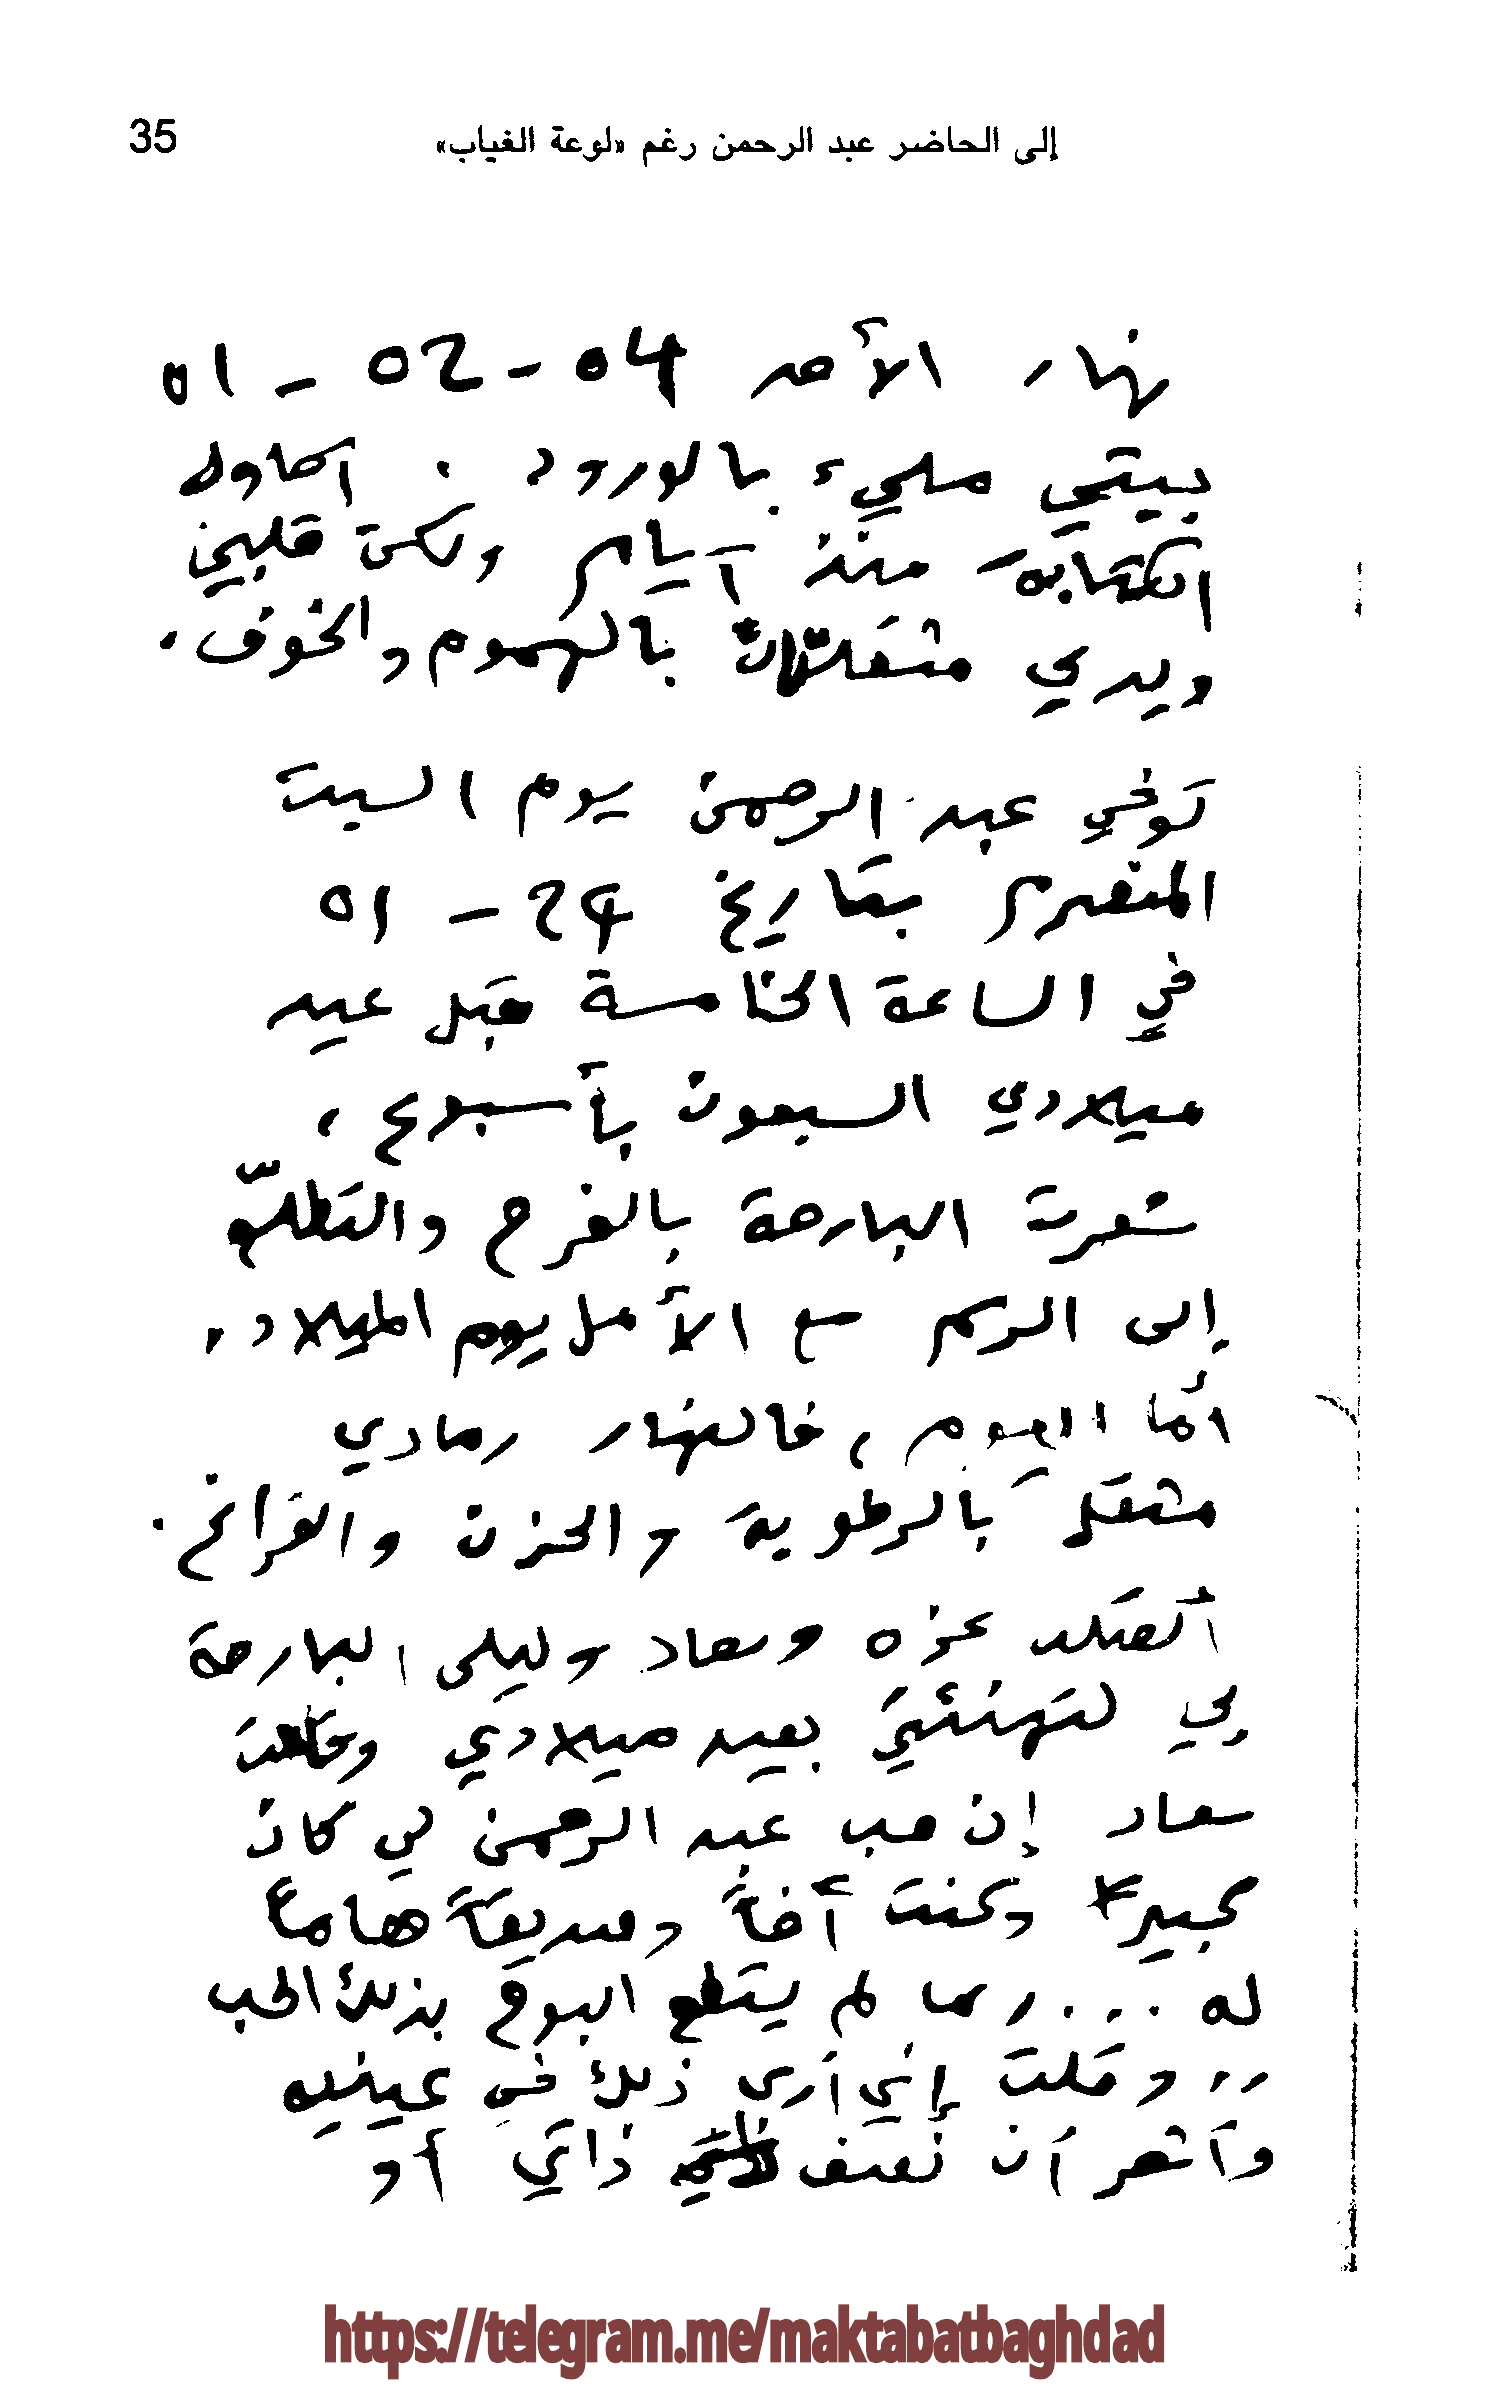 35
إلى الحاضر عبد الرحمن رغم «لوعة الغياب»
نهار الأحد 04 - 02 - 01
بيتي مليء بالورود . احاول
الكتابة منذ أيام ولكن قلبي
ويدي مثقلتان بالهموم والخوف .
توفي عبد الرحمن يوم السبت
المنصرم بتاريخ 24 - 01
في الساعة الخامسة قبل عيد
ميلادي السبعون بأسبوع ،
شعرت البارحة بالفرح والتطلّع
إلى الرسم مع الأمل يوم الميلاد ،
أما اليوم ، فالنهار رمادي
مثقل بالرطوبة والحزن والفراغ .
اتصلت عزه وسعاد وليلى البارحة
بي لتهنئتي بعيد ميلادي وقالت
سعاد إن حب عبد الرحمن لي كان
كبيراً وكنت أخاً وصديقاً هاماً
له ... ربما لم يستطع البوح بذلك الحب
،، وقلت إني أرى ذلك في عينيه
وأشعر أن نصف ذاتي أو
https://telegram.me/maktabatbaghdad